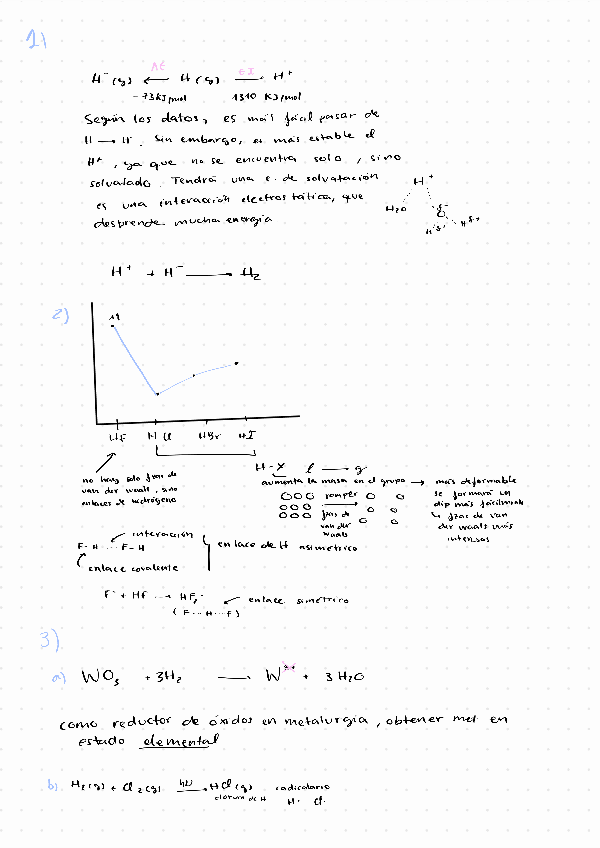 1)
AE EI
H⁻(g) ⟵ H(g) ⟶ H⁺
-73 kJ/mol 1310 KJ/mol
Según los datos, es más fácil pasar de
H → H⁻. Sin embargo, es más estable el
H⁺, ya que no se encuentra solo, sino
solvatado. Tendrá una e. de solvatación
es una interacción electrostática, que
desprende mucha energía
H⁺
H₂O O δ⁻
H δ⁺ H δ⁺
H⁺ + H⁻ ⟶ H₂
2)
HF HCl HBr HI
no hay solo fzas de
van der waals, sino
enlaces de hidrógeno
H-X l ⟶ g
aumenta la masa en el grupo → más deformable
se formará un
dip más fácilmente
↳ fzas de van
der waals más
intensas
romper
fzas de
van der
waals
interacción
F-H ... F-H
enlace covalente
enlace de H asimétrico
F⁻ + HF → HF₂⁻ enlace simétrico
(F---H---F)
3)
a) WO₃ + 3H₂ ⟶ W + 3 H₂O
como reductor de óxidos en metalurgia, obtener met en
estado elemental
b) H₂(g) + Cl₂(g) hν→ HCl(g) radicalario
cloruro de H H· Cl·